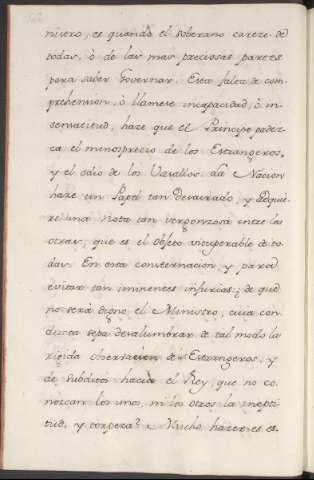 nistro, es quando el soberano careze de
todas, ò de las mas preciosas partes
para saber Governar. Esta falta de com-
prehension, ò llamese incapacidad, ò in-
sensatitud, haze que el Principe padez-
ca el menosprecio de los Estrangeros,
y el odio de los Vasallos. La Nacion
haze un Papel tan desairado, y Adquie-
re una Nota tan vergonzosa entre las
otras, que es el Objeto insuperable de to-
das. En esta consternacion y para
evitar tan iminentes injurias; de què
no serà digno el Ministro, cuia con-
ducta sepa deslumbrar de tal modo la
rigida obervacion de Estrangeros, y
de subditos hacia el Rey, que no co-
nozcan los unos, ni los otros la inepti-
tud, y torpeza? Mucho hazer es es-